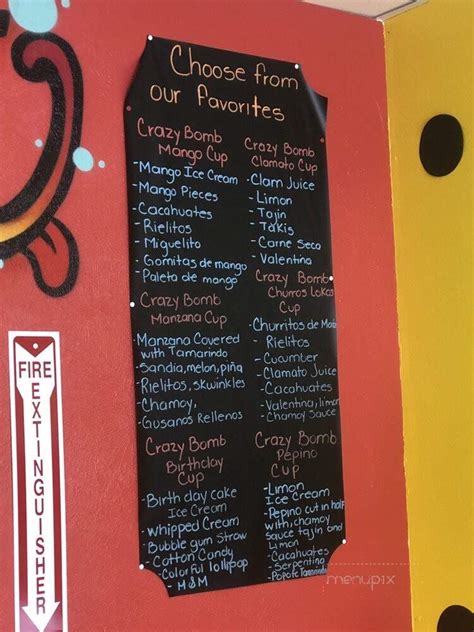 Choose from
our Favorites
Crazy Bomb
Mango Cup
-Mango Ice Cream
-Mango Pieces
- Cacahuates
- Rielitos
- Miguelito
- Gomitas de mango
- Paleta de mango
Crazy Bomb
Manzana Cup
-Manzano Covered
with Tamarindo
-Sandia, melon, piña
-Rielitos, skwinkles
- Chamoy,
- Gusanos Rellenos
Crazy Bomb
Birthday
Cup
- Birth day cake
Ice Cream
- whipped Cream
- Bubble gum straw
- Cotton Candy
- Colorful lollipop
- M&M
Crazy Bomb
Clamato Cup
-Clam Juice
- Limon
- Tajin
- Takis
- Carne Seco
- Valentina
Crazy Bomb
Churros Lokos
Cup
-Churritos de
- Rielitos
- Cucumber
- Clamato Juice
- Cacahuates
- Valentina, limon
- Chamoy Sauce
Crazy Bomb
Pepino
Cup
-Limon
Ice Cream
-Pepino cut in half
with chamoy
sauce tajin and
Limon
-Cacahuates
- Serpentina
- Popote
FIRE
EXTINGUISHER
menupix